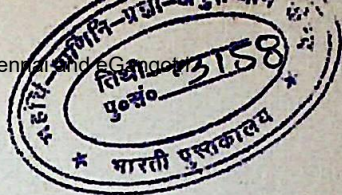 ennai and eGangotri
महर्षि-पाणिनि-प्रज्ञा-
तिथि
पु०सं० 3158
* भारती पुस्तकालय *